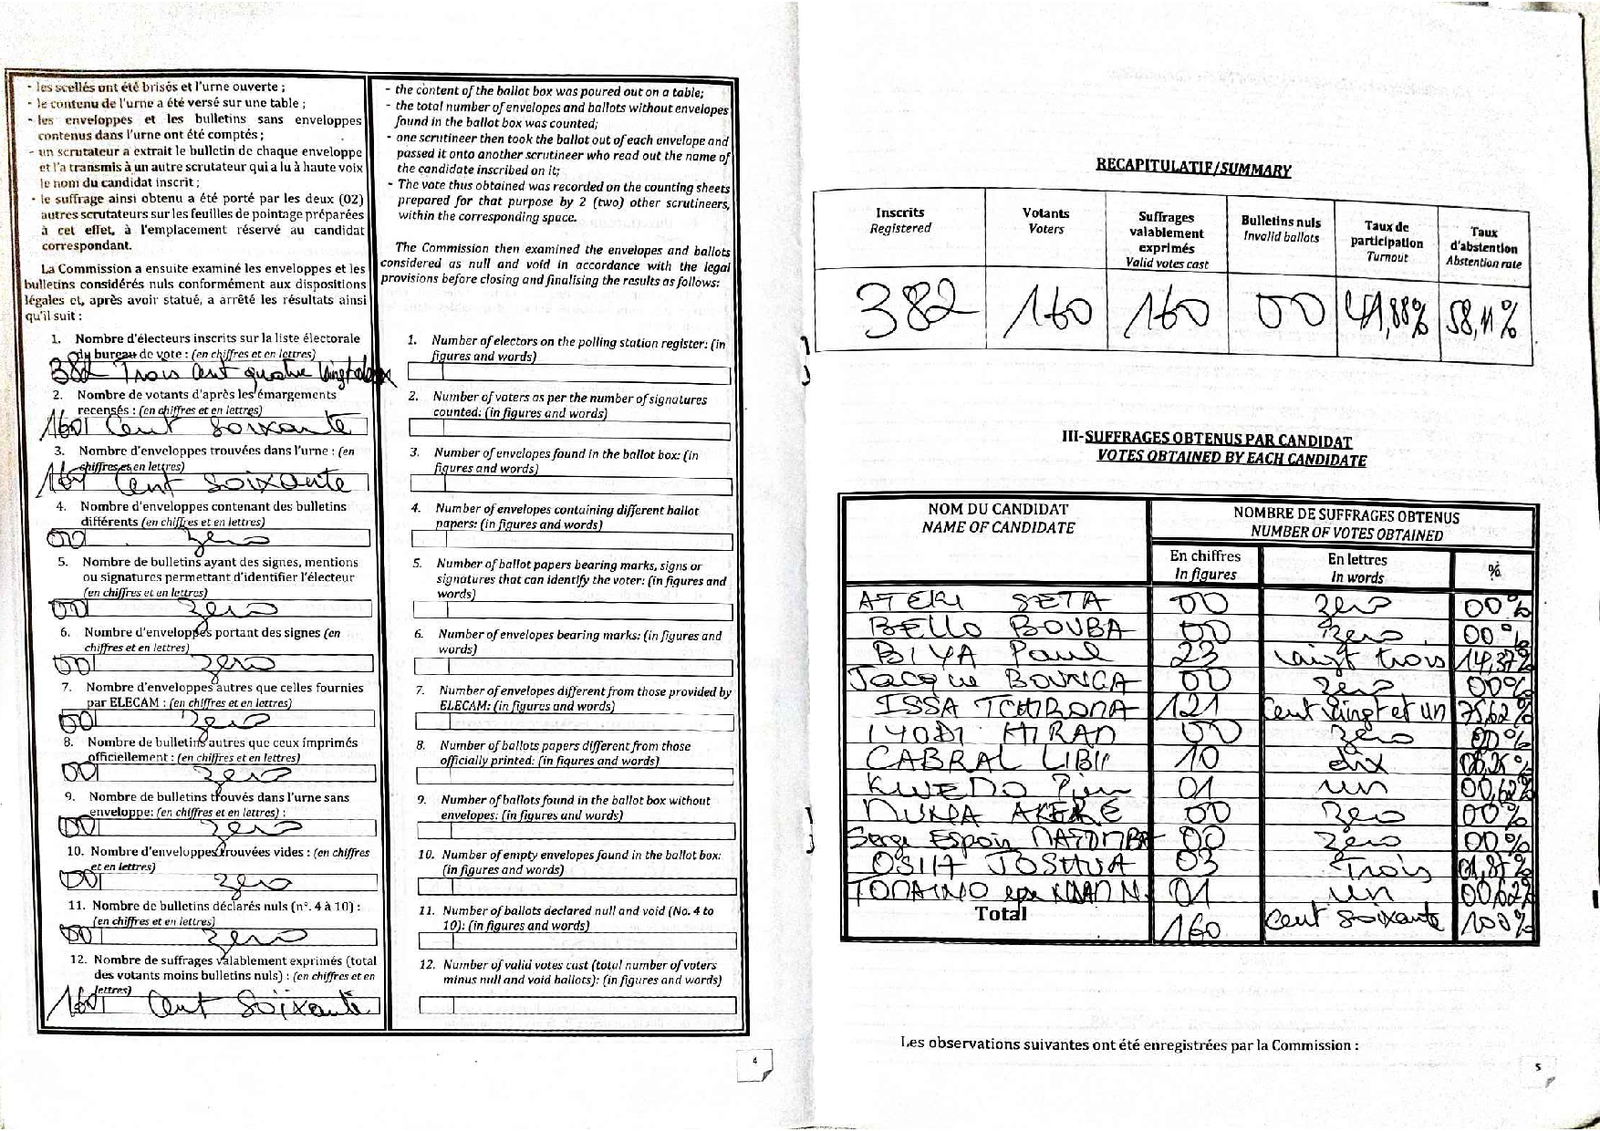 - les scellés ont été brisés et l'urne ouverte ;
- le contenu de l'urne a été versé sur une table ;
- les enveloppes et les bulletins sans enveloppes
contenus dans l'urne ont été comptés ;
- un scrutateur a extrait le bulletin de chaque enveloppe
et l'a transmis à un autre scrutateur qui a lu à haute voix
le nom du candidat inscrit ;
- le suffrage ainsi obtenu a été porté par les deux (02)
autres scrutateurs sur les feuilles de pointage préparées
à cet effet, à l'emplacement réservé au candidat
correspondant.
La Commission a ensuite examiné les enveloppes et les
bulletins considérés nuls conformément aux dispositions
légales et, après avoir statué, a arrêté les résultats ainsi
qu'il suit :
1. Nombre d'électeurs inscrits sur la liste électorale
du bureau de vote : (en chiffres et en lettres)
382 Trois Cent quatre Vingt deux
2. Nombre de votants d'après les émargements
recensés : (en chiffres et en lettres)
160 Cent Soixante
3. Nombre d'enveloppes trouvées dans l'urne : (en
chiffres et en lettres)
160 Cent Soixante
4. Nombre d'enveloppes contenant des bulletins
différents (en chiffres et en lettres)
00 zero
5. Nombre de bulletins ayant des signes, mentions
ou signatures permettant d'identifier l'électeur
(en chiffres et en lettres)
00 zero
6. Nombre d'enveloppes portant des signes (en
chiffres et en lettres)
00 zero
7. Nombre d'enveloppes autres que celles fournies
par ELECAM : (en chiffres et en lettres)
00 zero
8. Nombre de bulletins autres que ceux imprimés
officiellement : (en chiffres et en lettres)
00 zero
9. Nombre de bulletins trouvés dans l'urne sans
enveloppe: (en chiffres et en lettres) :
00 zero
10. Nombre d'enveloppes trouvées vides : (en chiffres
et en lettres)
00 zero
11. Nombre de bulletins déclarés nuls (n°. 4 à 10) :
(en chiffres et en lettres)
00 zero
12. Nombre de suffrages valablement exprimés (total
des votants moins bulletins nuls) : (en chiffres et en
lettres)
160 Cent Soixante
- the content of the ballot box was poured out on a table;
- the total number of envelopes and ballots without envelopes
found in the ballot box was counted;
- one scrutineer then took the ballot out of each envelope and
passed it onto another scrutineer who read out the name of
the candidate inscribed on it;
- The vote thus obtained was recorded on the counting sheets
prepared for that purpose by 2 (two) other scrutineers,
within the corresponding space.
The Commission then examined the envelopes and ballots
considered as null and void in accordance with the legal
provisions before closing and finalising the results as follows:
1. Number of electors on the polling station register: (in
figures and words)
2. Number of voters as per the number of signatures
counted: (in figures and words)
3. Number of envelopes found in the ballot box: (in
figures and words)
4. Number of envelopes containing different ballot
papers: (in figures and words)
5. Number of ballot papers bearing marks, signs or
signatures that can identify the voter: (in figures and
words)
6. Number of envelopes bearing marks: (in figures and
words)
7. Number of envelopes different from those provided by
ELECAM: (in figures and words)
8. Number of ballots papers different from those
officially printed: (in figures and words)
9. Number of ballots found in the ballot box without
envelopes: (in figures and words)
10. Number of empty envelopes found in the ballot box:
(in figures and words)
11. Number of ballots declared null and void (No. 4 to
10): (in figures and words)
12. Number of valid votes cast (total number of voters
minus null and void ballots): (in figures and words)
4
RECAPITULATIF/SUMMARY
Inscrits Registered
Votants Voters
Suffrages valablement exprimés Valid votes cast
Bulletins nuls Invalid ballots
Taux de participation Turnout
Taux d'abstention Abstention rate
382 160 160 00 41,88% 58,11%
III-SUFFRAGES OBTENUS PAR CANDIDAT
VOTES OBTAINED BY EACH CANDIDATE
NOM DU CANDIDAT NOMBRE DE SUFFRAGES OBTENUS
NAME OF CANDIDATE NUMBER OF VOTES OBTAINED
En chiffres En lettres %
In figures In words
ATEKI SETA 00 zero 00%
BELLO BOUBA 00 zero 00%
BIYA Paul 23 vingt trois 14,37%
Jacque BOUNGA 00 zero 00%
ISSA TCHIROMA 121 Cent Vingt et un 75,62%
IYODI HIRAM 00 zero 00%
CABRAL LIBII 10 dix 06,25%
KWEMO Pierre 01 un 00,62%
MUNA AKERE 00 zero 00%
Serge Espoir MATOMBA 00 zero 00%
OSIH JOSHUA 03 Trois 01,87%
TOMAINO epe 01 un 00,62%
Total 160 Cent Soixante 100%
Les observations suivantes ont été enregistrées par la Commission :
5